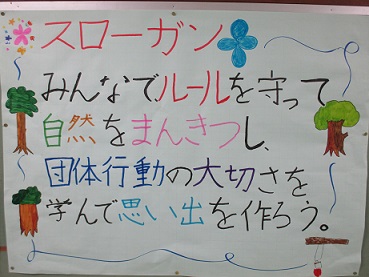 スローガン
みんなで、ルールを守って
自然をまんきつし、
団体行動の大切さを
学んで思い出を作ろう。